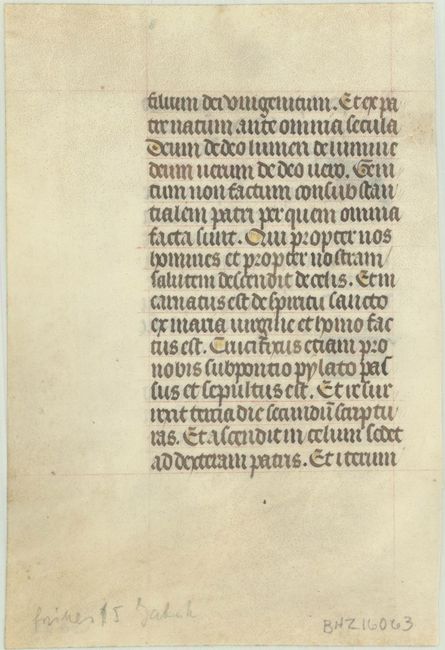 filium dei vnigenitum. Et ex pa
tre natum ante omnia secula
Deum de deo lumen de lumine
deum uerum de deo uero. Geni
tum non factum consubstan
tialem patri per quem omnia
facta sunt. Qui propter nos
homines et propter nostram
salutem descendit de celis. Et in
carnatus est de spiritu sancto
ex maria uirgine et homo fac
tus est. Crucifixus etiam pro
nobis sub pontio pylato pas
sus et sepultus est. Et resur
rexit tercia die secundũ scriptu
ras. Et ascendit in celum sedet
ad dexteram patris. Et iterum
15
BHZ16063